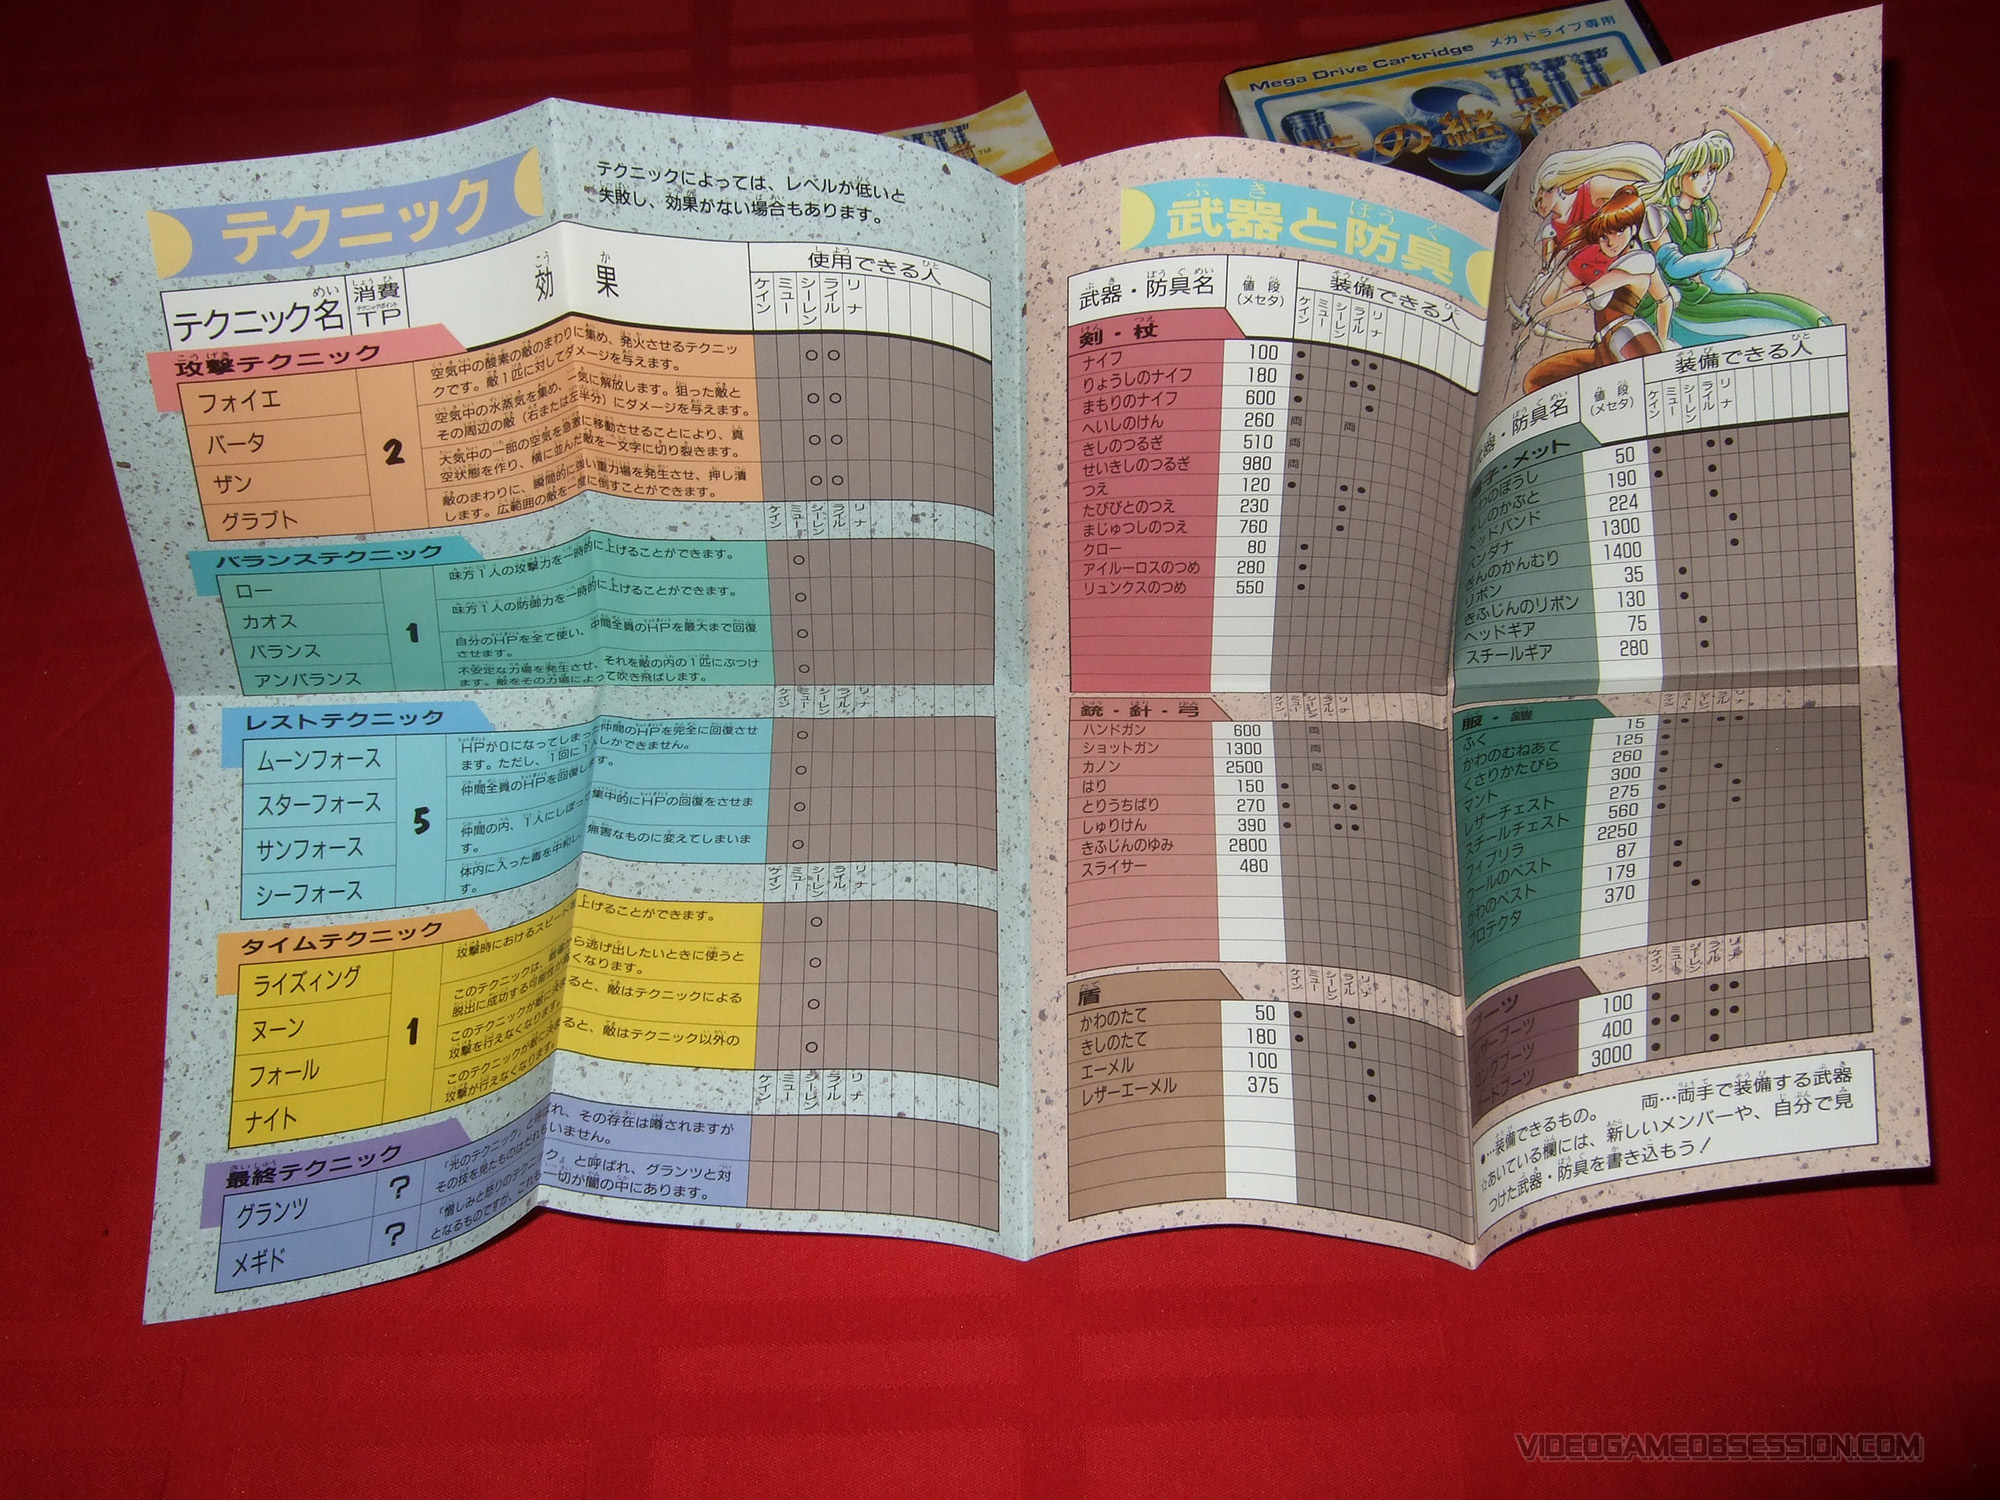 Mega Drive Cartridge メガドライブ専用
テクニック
テクニックによっては、レベルが低いと
失敗し、効果がない場合もあります。
テクニック名
消費
TP
効果
使用できる人
ケイン ミュー シーレン ライル リナ
攻撃テクニック
フォイエ
バータ
ザン
グラブト
2
空気中の酸素の敵のまわりに集め、発火させるテクニッ
クです。敵1匹に対してダメージを与えます。
空気中の水蒸気を集め、一気に解放します。狙った敵と
その周辺の敵(右または左半分)にダメージを与えます。
大気中の一部の空気を急激に移動させることにより、真
空状態を作り、横に並んだ敵を一文字に切り裂きます。
敵のまわりに、瞬間的に強い重力場を発生させ、押し潰
します。広範囲の敵を一度に倒すことができます。
ケイン ミュー シーレン ライル リナ
バランステクニック
ロー
カオス
バランス
アンバランス
1
味方1人の攻撃力を一時的に上げることができます。
味方1人の防御力を一時的に上げることができます。
自分のHPを全て使い、仲間全員のHPを最大まで回復
させます。
不安定な力場を発生させ、それを敵の内の1匹にぶつけ
ます。敵をその力場によって吹き飛ばします。
ケイン ミュー シーレン ライル リナ
レストテクニック
ムーンフォース
スターフォース
サンフォース
シーフォース
5
HPが0になってしまった仲間のHPを完全に回復させ
ます。ただし、1回に1人しかできません。
仲間全員のHPを回復します。
仲間の内、1人にしぼって集中的にHPの回復をさせま
す。
体内に入った毒を中和し、無害なものに変えてしまいま
す。
ケイン ミュー シーレン ライル リナ
タイムテクニック
ライズィング
ヌーン
フォール
ナイト
1
攻撃時におけるスピードを上げることができます。
このテクニックは、戦場から逃げ出したいときに使うと
脱出に成功する可能性が高くなります。
このテクニックが敵に決まると、敵はテクニックによる
攻撃を行えなくなります。
このテクニックが敵に決まると、敵はテクニック以外の
攻撃が行えなくなります。
ケイン ミュー シーレン ライル リナ
最終テクニック
グランツ ?
メギド ?
「光のテクニック」と呼ばれ、その存在は噂されますが
その技を見たものはだれもいません。
「憎しみと怒りのテクニック」と呼ばれ、グランツと対
となるものですが、これも一切が闇の中にあります。
武器と防具
武器・防具名 値段(メセタ) 装備できる人
ケイン ミュー シーレン ライル リナ
剣・杖
ナイフ 100
りょうしのナイフ 180
まもりのナイフ 600
へいしのけん 260 両 両
きしのつるぎ 510 両
せいきしのつるぎ 980 両
つえ 120
たびびとのつえ 230
まじゅつしのつえ 760
クロー 80
アイルーロスのつめ 280
リュンクスのつめ 550
銃・針・弓
ケイン ミュー シーレン ライル リナ
ハンドガン 600 両
ショットガン 1300 両
カノン 2500 両
はり 150
とりうちばり 270
しゅりけん 390
きふじんのゆみ 2800
スライサー 480
盾
ケイン ミュー シーレン ライル リナ
かわのたて 50
きしのたて 180
エーメル 100
レザーエーメル 375
器・防具名 値段(メセタ) 装備できる人
ケイン ミュー シーレン ライル リナ
子・メット
わのぼうし 50
きしのかぶと 190
ヘッドバンド 224
バンダナ 1300
ぎんのかんむり 1400
リボン 35
きふじんのリボン 130
ヘッドギア 75
スチールギア 280
服・鎧
ふく 15
かわのむねあて 125
くさりかたびら 260
マント 300
レザーチェスト 275
スチールチェスト 560
フィブリラ 2250
ウールのベスト 87
かわのベスト 179
プロテクタ 370
ケイン ミュー シーレン ライル リナ
ブーツ
レザーブーツ 100
ロングブーツ 400
ートブーツ 3000
●…装備できるもの。 両…両手で装備する武器
☆あいている欄には、新しいメンバーや、自分で見
つけた武器・防具を書き込もう!
VIDEOGAMEOBSESSION.COM